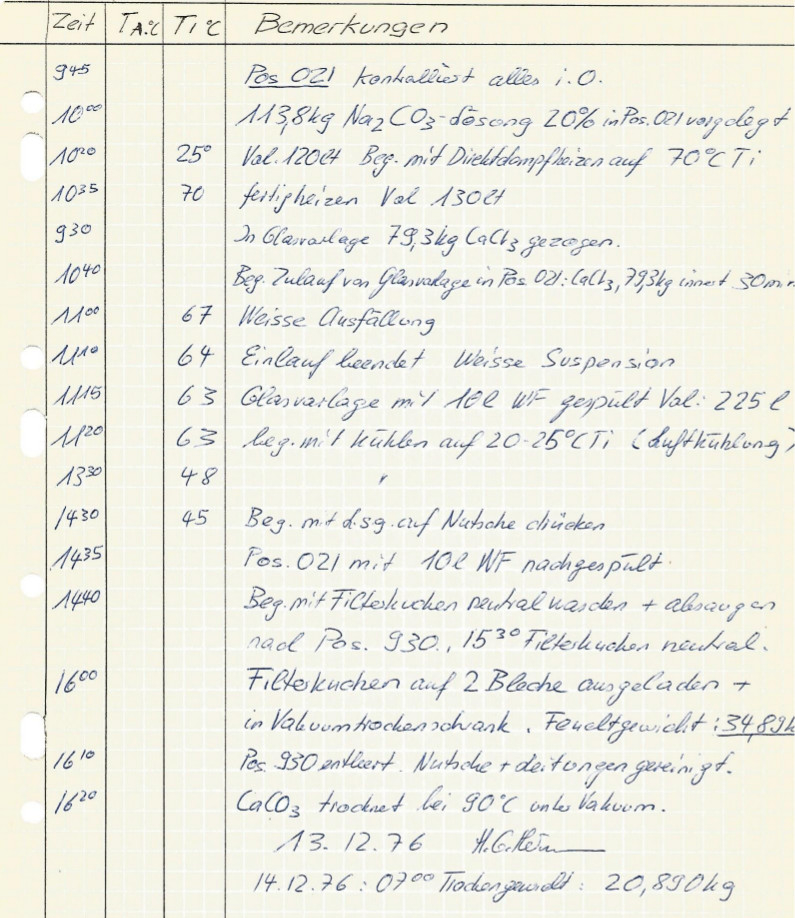 Zeit TA.°C Ti °C Bemerkungen
945 Pos 021 kontrolliert alles i.O.
10⁰⁰ 113,8kg Na₂CO₃-Lösung 20% in Pos. 021 vorgelegt
10²⁰ 25° Vol. 120lt Beg. mit Direktdampfheizen auf 70°C Ti
10³⁵ 70 fertigheizen Vol 130lt
930 In Glasvorlage 79,3kg CaCl₂ gezogen.
10⁴⁰ Beg. Zulauf von Glasvorlage in Pos. 021: CaCl₂, 79,3kg innert 30min
11⁰⁰ 67 Weisse Ausfällung
11¹⁰ 64 Einlauf beendet Weisse Suspension
11¹⁵ 63 Glasvorlage mit 10l WF gespült Vol: 225 l
11²⁰ 63 beg. mit kühlen auf 20-25°C Ti (Luftkühlung)
13³⁰ 48 "
14³⁰ 45 Beg. mit d.sg. auf Nutsche drücken
14³⁵ Pos. 021 mit 10l WF nachgespült.
14⁴⁰ Beg. mit Filterkuchen neutral waschen + absaugen
nach Pos. 930., 15³⁰ Filterkuchen neutral.
16⁰⁰ Filterkuchen auf 2 Bleche ausgeladen +
in Vakuumtrockenschrank. Feuchtgewicht: 34,89k
16¹⁰ Pos. 930 entleert. Nutsche + Leitungen gereinigt.
16²⁰ CaCO₃ trocknet bei 90°C unter Vakuum.
13.12.76
14.12.76: 07⁰⁰ Trockengewicht: 20,890kg